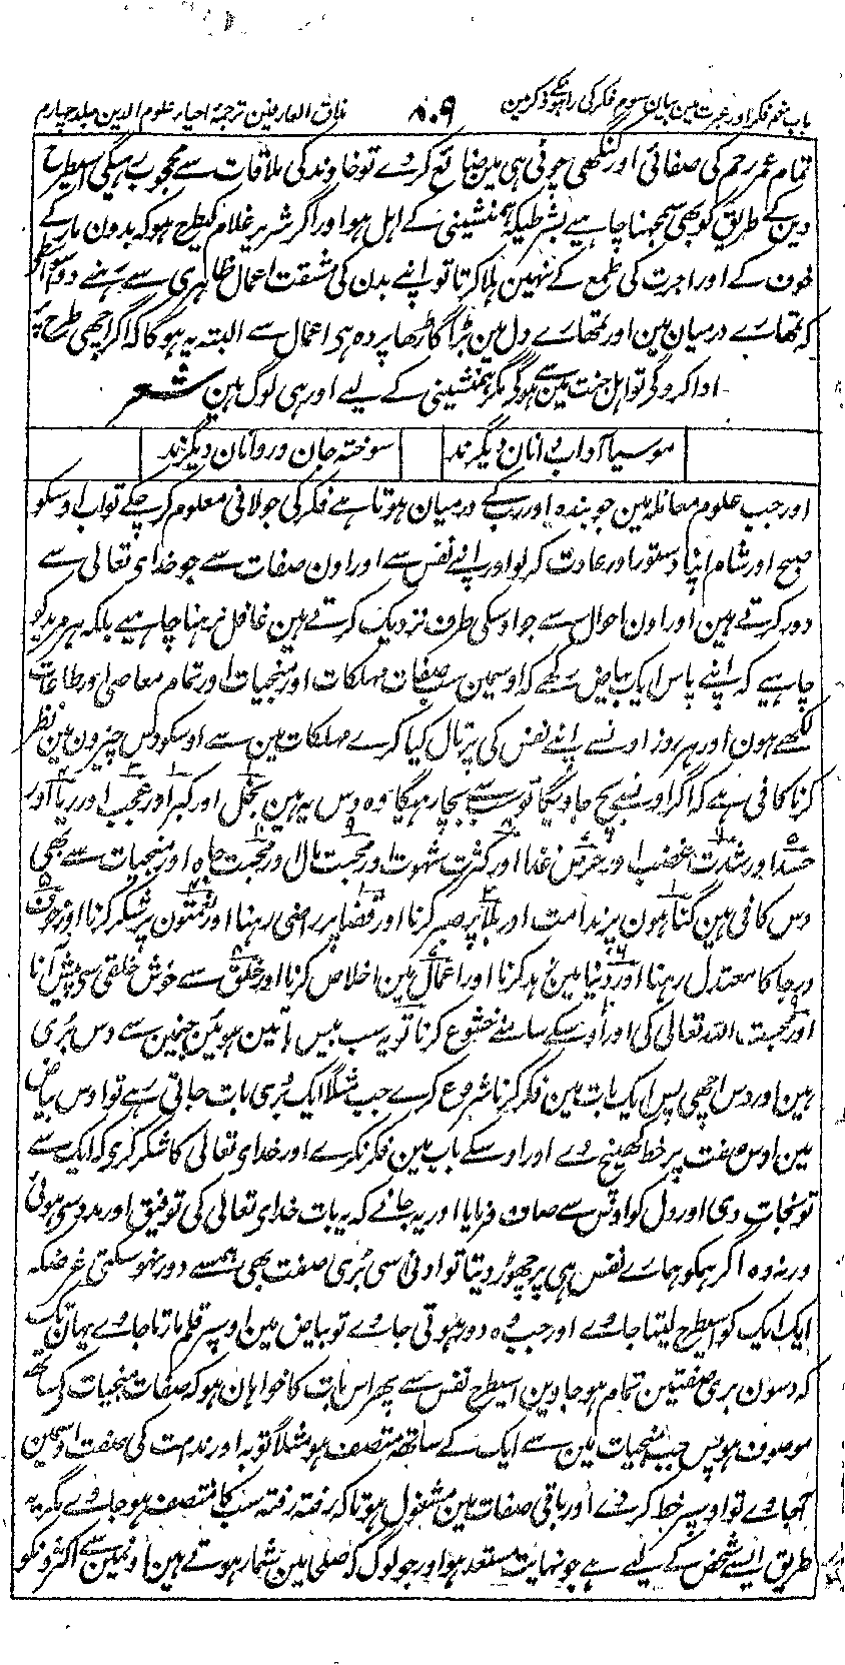 باب نہم فکر اور عبرت مین بیان سوم فکر کی راہونکے ذکر مین
۸۰۹
مذاق العارفین ترجمۂ احیاء علوم الدین جلد چہارم
تمام عمر رحم کی صفائی اور کنگھی چوٹی ہی مین ضائع کر دے تو خاوند کی ملاقات سے محجوب رہیگی اسیطرح
دین کے طریق کو بھی سمجھنا چاہیے بشرطیکہ ہمنشینی کے اہل ہو اور اگر شریر غلام کیطرح ہو کہ بدون مار کے
خوف کے اور اجرت کی طمع کے نہین ہلا کرتا تو اپنے بدن کی مشقت اعمال ظاہری سے رہنے دو اسواسطے
کہ تمھارے درمیان مین اور تمھارے دل مین بڑا گاڑھا پردہ ہی اعمال سے البتہ یہ ہوگا کہ اگر اچھی طرح پر
ادا کروگے تو اہل جنت مین سے ہوگے مگر ہمنشینی کے لیے اور ہی لوگ ہین شعر
موسیا آداب دانان دیگرند
سوختہ جان و روانان دیگرند
اور جب علوم معاملہ مین جو بندہ اور رب کے درمیان ہوتا ہے فکر کی جولانی معلوم کر چکے تو اب اوسکو
صبح اور شام اپنا دستور اور عادت کر لو اور اپنے نفس سے اور اون صفات سے جو خدای تعالی سے
دور کرتے ہین اور اون احوال سے جو اوسکی طرف نزدیک کرتے ہین غافل نرہنا چاہیے بلکہ ہر مرید کو
چاہیے کہ اپنے پاس ایک بیاض رکھے کہ اوسمین سب صفات مہلکات اور منجیات اور تمام معاصی اور طاعات
لکھے ہون اور ہر روز اونسے اپنے نفس کی پرتال کیا کرے مہلکات مین سے اوسکو دس چیزون مین نظر
کرنا کافی ہے کہ اگر اونسے بچ جاویگا تو سب سے بچا رہیگا وہ دس یہ ہین بخل اور کبر اور عجب اور ریا اور
حسد اور شدت غضب اور حرص غذا اور کثرت شہوت اور محبت مال اور محبت جاہ اور منجیات سے بھی
دس کافی ہین گناہون پر ندامت اور بلا پر صبر کرنا اور قضا پر راضی رہنا اور نعمتون پر شکر کرنا اور خوف
و رجا کا معتدل رہنا اور دنیا مین زہد کرنا اور اعمال مین اخلاص کرنا اور خلق سے خوش خلقی سی پیش آنا
اور محبت اللہ تعالی کی اور اوسکے سامنے خشوع کرنا تو یہ سب بیس باتین ہوئین جنمین سے دس بری
ہین اور دس اچھی پس ایک بات مین فکر کرنا شروع کرے جب مثلاً ایک بری بات جاتی رہے تو اوس بیاض
مین اوس صفت پر خط کھینچ دے اور اوسکے باب مین فکر نکرے اور خدای تعالی کا شکر کری کہ ایک سے
تو نجات دی اور دل کو اوس سے صاف فرمایا اور یہ جانے کہ یہ بات خدای تعالی کی توفیق اور مدد سی ہوئی
ورنہ وہ اگر ہمکو ہمارے نفس ہی پر چھوڑ دیتا تو ادنی سی بری صفت بھی ہمسے دور نہو سکتی غرضکہ
ایک ایک کو اسیطرح لیتا جاوے اور جب وہ دور ہوتی جاوے تو بیاض مین اوسپر قلم مارتا جاوے یہان تک
کہ دسون بری صفتین تمام ہو جاوین اسیطرح نفس سے پھر اس بات کا خواہان ہو کہ صفات منجیات کے ساتھ
موصوف ہو پس جب منجیات مین سے ایک کے ساتھ متصف ہو مثلاً توبہ اور ندامت کی صفت اوسمین
آجاوے تو اوسپر خط کر دے اور باقی صفات مین مشغول ہو تا کہ رفتہ رفتہ سب کا متصف ہو جاوے مگر یہ
طریق ایسے شخص کے لیے ہے جو نہایت مستعد ہو اور جو لوگ کہ صلحا مین شمار ہوتے ہین اونمین سے اکثرونکو